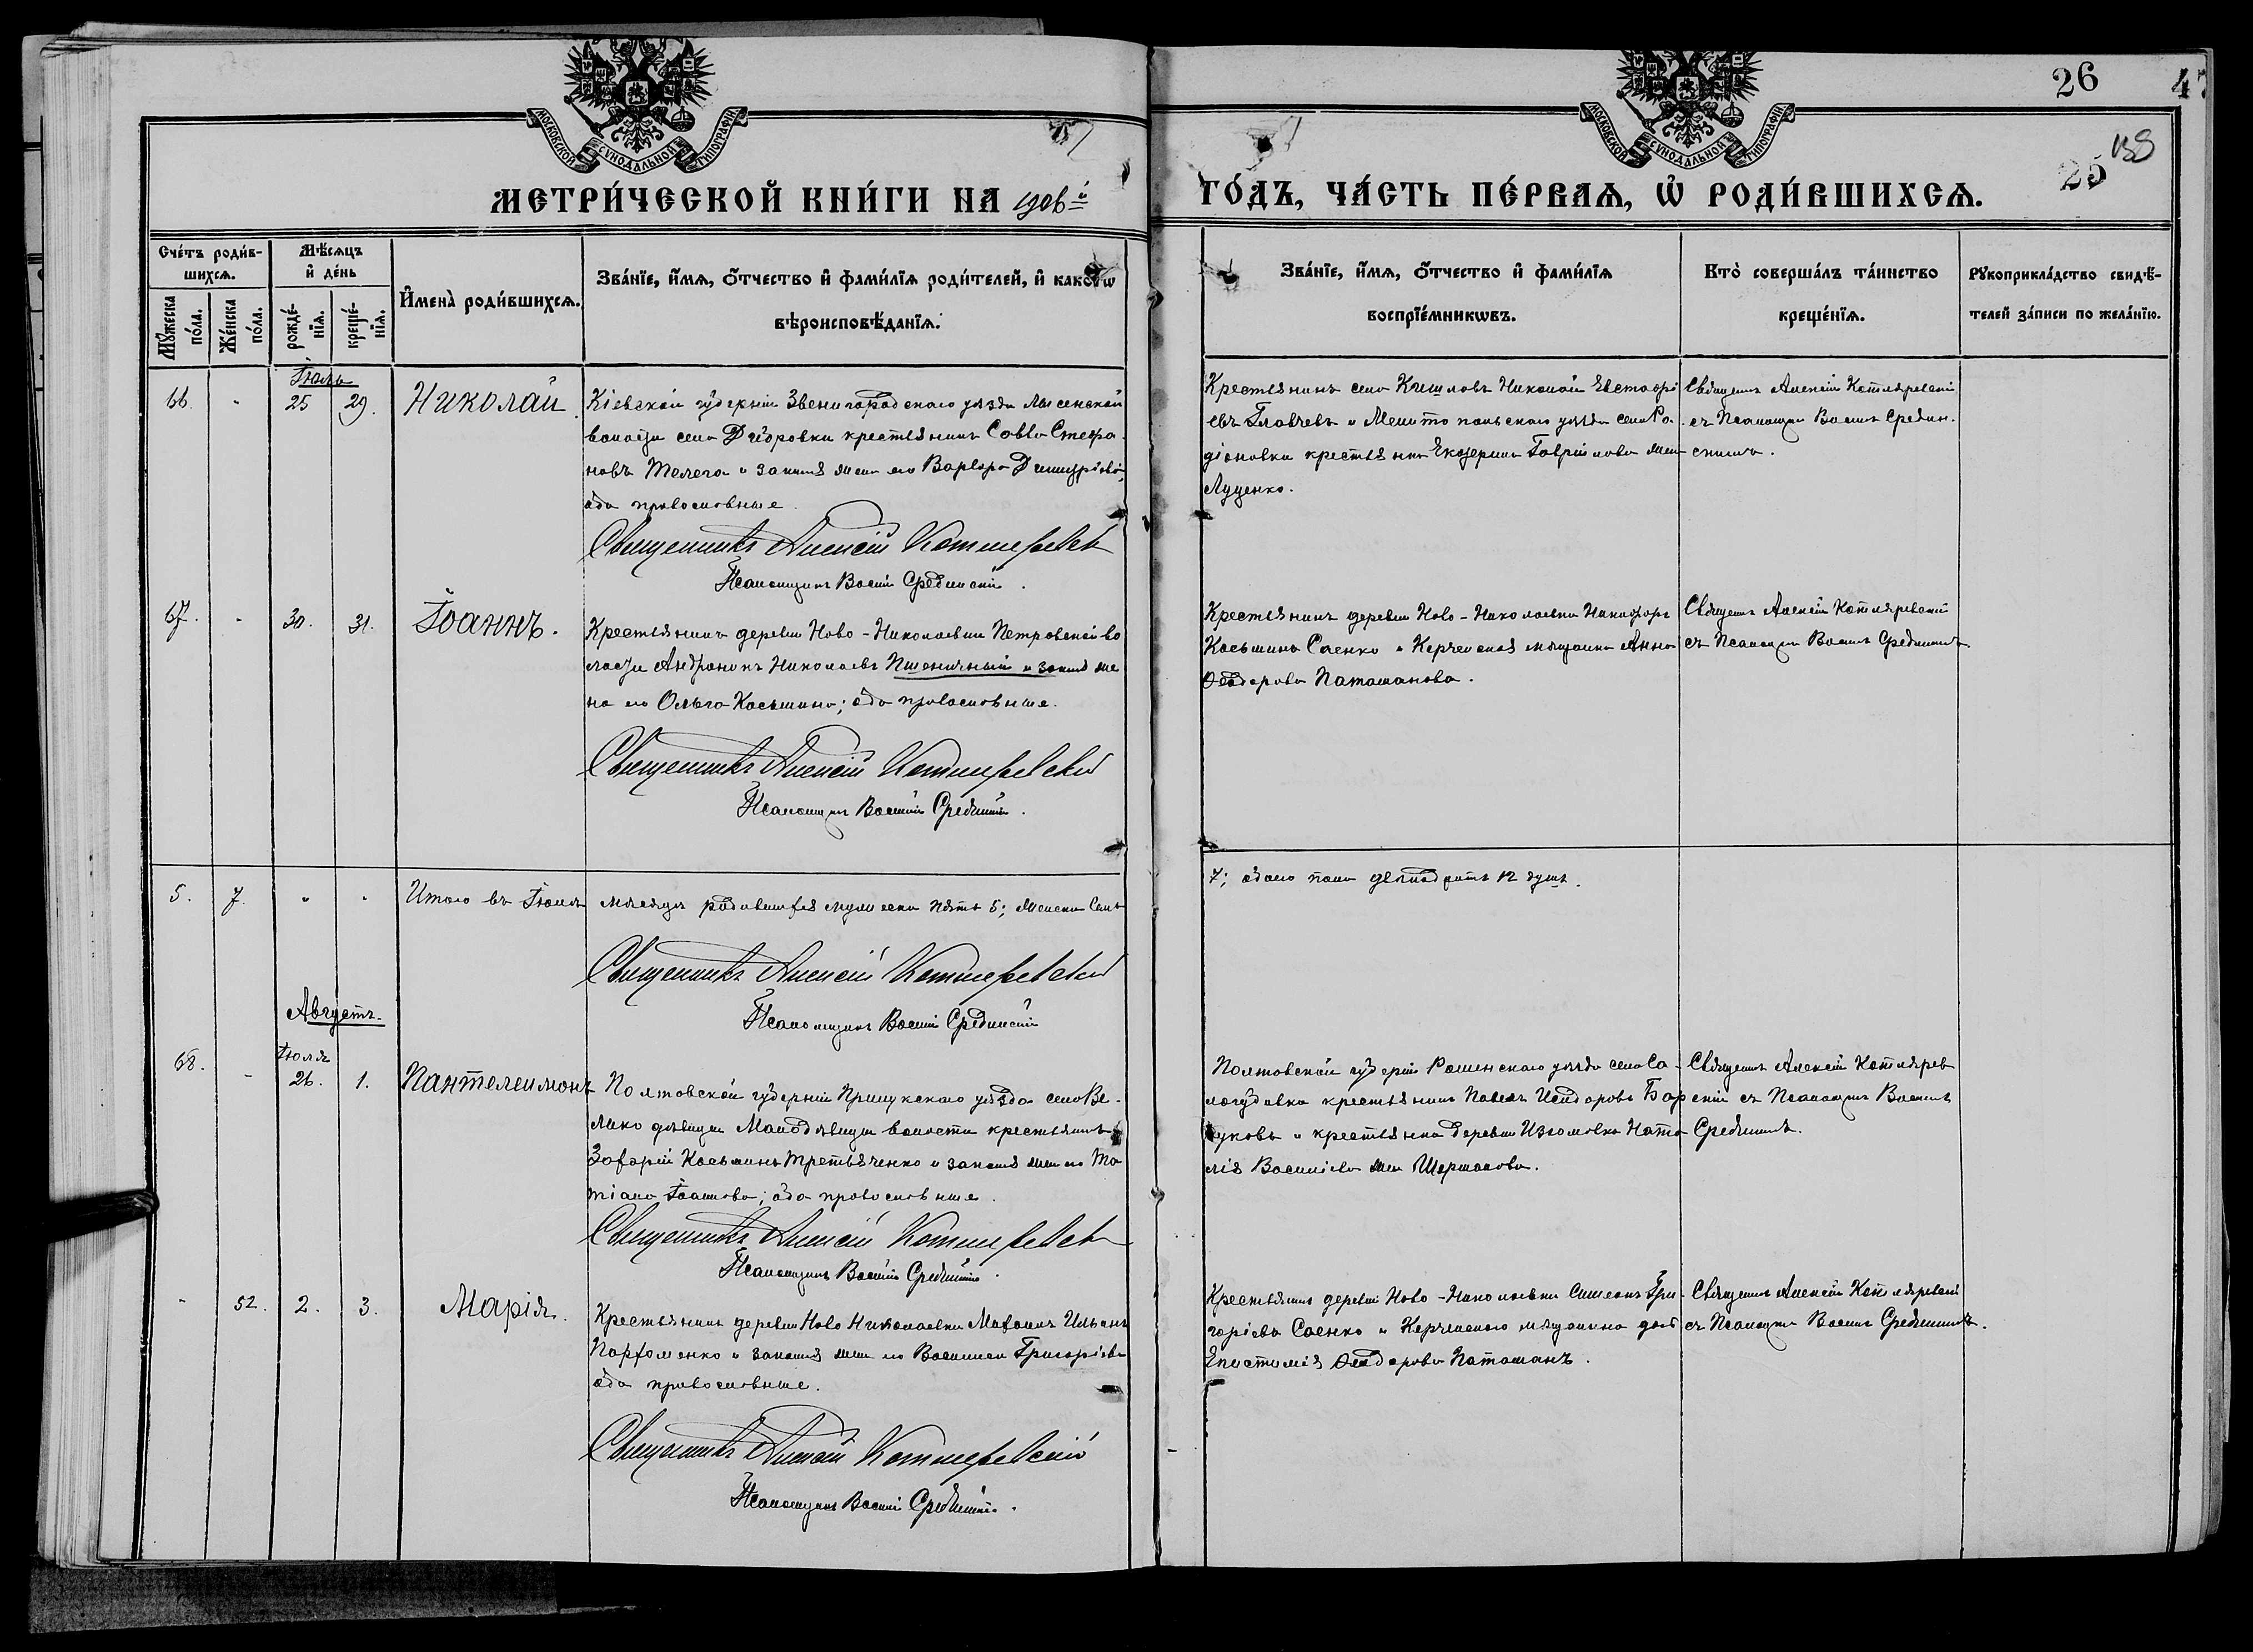 26
МОСКОВСКОЙ СѴНОДАЛЬНОЙ ТИПОГРАФІИ
МОСКОВСКОЙ СѴНОДАЛЬНОЙ ТИПОГРАФІИ
25
МЕТРИ́ЧЕСКОЙ КНИ́ГИ НА 1906й
ГО́ДЪ, ЧА́СТЬ ПЕ́РВАѦ, Ѡ҆ РОДИ́ВШИХСѦ.
Сче́тъ роди́в-
шихсѧ.
Мѣ́сѧцъ
и҆ де́нь
Мꙋ́жеска
по́ла.
Же́нска
по́ла.
рожде́-
нїѧ.
креще́-
нїѧ.
И҆мена̀ роди́вшихсѧ.
Зва́нїе, и҆́мѧ, ѻ҆́тчество и҆ фами́лїѧ роди́телей, и҆ како́гѡ
вѣроисповѣ́данїѧ.
Зва́нїе, и҆́мѧ, ѻ҆́тчество и҆ фами́лїѧ
воспрїе́мникѡвъ.
Кто̀ соверша́лъ та́инство
креще́нїѧ.
Рꙋкоприкла́дство свидѣ́-
телей за́писи по жела́нїю.
Іюль
66. - 25 29. Николай
Кіевской губерніи Звенигородскаго уѣзда Лысенской
волости села крестьянинъ Савва Стефа
новъ Телега и законная жена его Варвара Димитріева;
оба православные.
Священникъ Алексій Котляревскій
Псаломщикъ Василій Срединскій.
Крестьянинъ села Николай Евстафі
евъ Главчевъ и Мелитопольскаго уѣзда села Ро-
діоновки крестьянка Екатерина Гавріилова жена
Луценко.
Священникъ Алексій Котляревскій
съ Псаломщикомъ Василіемъ Средин-
скимъ.
67. - 30. 31. Іоаннъ.
Крестьянинъ деревни Ново-Николаевки Петровской во
лости Андроникъ Николаевъ Пшеничный и законная же
на его Ольга Косьмина; оба православные.
Священникъ Алексій Котляревскій
Псаломщикъ Василій Срединскій.
Крестьянинъ деревни Ново-Николаевки Никифоръ
Косьминъ Саенко и Керченская мѣщанка Анна
Ѳеодорова Паташанова.
Священникъ Алексій Котляревскій
съ Псаломщикомъ Василіемъ Срединскимъ
5. 7. " " Итого въ Іюлѣ мѣсяцѣ родившихся мужеска пять 5; женска семь
7; обоего пола двѣнадцать 12 душъ.
Священникъ Алексій Котляревскій
Псаломщикъ Василій Срединскій
Августъ.
68. - Іюля 26. 1. Пантелеимонъ
Полтавской губерніи Прилукскаго уѣзда села Ве-
лико дѣвицы Малодѣвицкой волости крестьянинъ
Захарій Косьминъ Третьяченко и законная жена его Та
тіана Іоаннова; оба православные.
Священникъ Алексій Котляревскій
Псаломщикъ Василій Срединскій.
Полтавской губерніи Роменскаго уѣзда села Са-
крестьянинъ Павелъ Исидоровъ
и крестьянка деревни Ната
лія Василіева жена Шаршакова.
Священникъ Алексій Котлярев
скій съ Псаломщикомъ Василіемъ
Срединскимъ.
- 52. 2. 3. Марія.
Крестьянинъ деревни Ново Николаевки Михаилъ Ильинъ
Пархоменко и законная жена его Василисса Григоріева
оба православные.
Священникъ Алексій Котляревскій
Псаломщикъ Василій Срединскій.
Крестьянинъ деревни Ново-Николаевки Симеонъ Гри-
горіевъ Саенко и Керченскаго мѣщанина дочь
Епистимія Ѳеодорова Паташанъ.
Священникъ Алексій Котляревскій
съ Псаломщикомъ Василіемъ Срединскимъ.